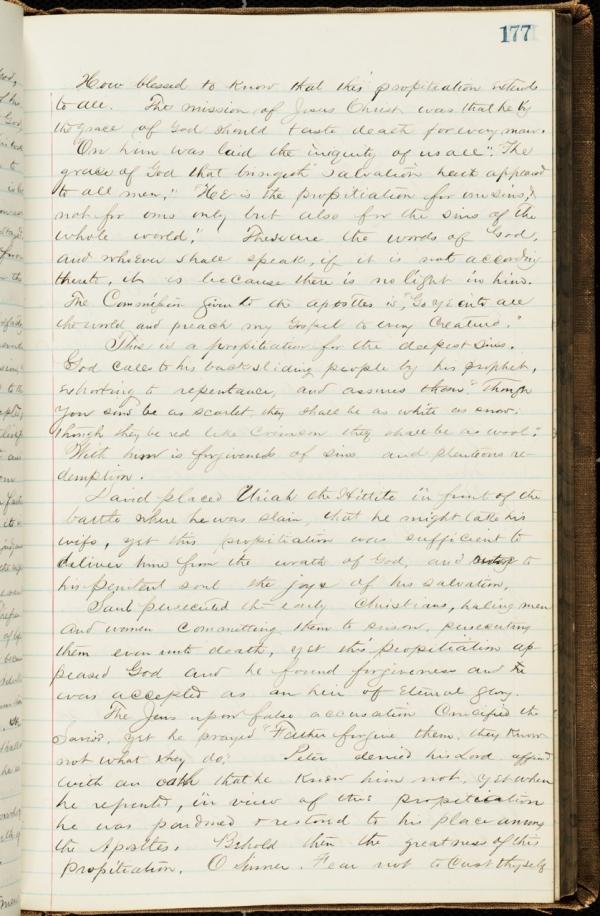 177
How blessed to know that this propitiation extends
to all. The mission of Jesus Christ was that he by
the grace of God should taste death for every man.
"On him was laid the iniquity of us all". "The
grace of God that bringeth salvation hath appeared
to all men," "He is the propitiation for our sins, &
not for ours only but also for the sins of the
whole world." These are the words of God,
and whoever shall speak, if it is not according
thereto, it is because there is no light in him.
The Commission given to the apostles is, "Go ye into all
the world and preach my Gospel to every Creature."
This is a propitiation for the deepest sins.
God calls to his backsliding people by his prophet,
exhorting to repentance, and assures them "Though
your sins be as scarlet, they shall be as white as snow:
though they be red like Crimson they shall be as wool".
With him is forgiveness of sins and plenteous re-
demption.
David placed Uriah the Hittite in front of the
battle where he was slain, that he might take his
wife, yet this propitiation was sufficient to
deliver him from the wrath of God, and to
his penitent soul the joys of his salvation,
Saul persecuted the early Christians, haling men
and women committing them to prison, persecuting
them even unto death, yet this propitiation ap-
peased God and he found forgiveness and
was accepted as an heir of Eternal glory.
The Jews upon false accusation Crucified the
Savior, yet he prayed "Father forgive them, they know
not what they do." Peter denied his Lord
with an oath that he knew him not, yet when
he repented, in view of this propitiation
he was pardoned & restored to his place among
the Apostles. Behold then the greatness of this
propitiation. O Sinner. Fear not to Cast thyself